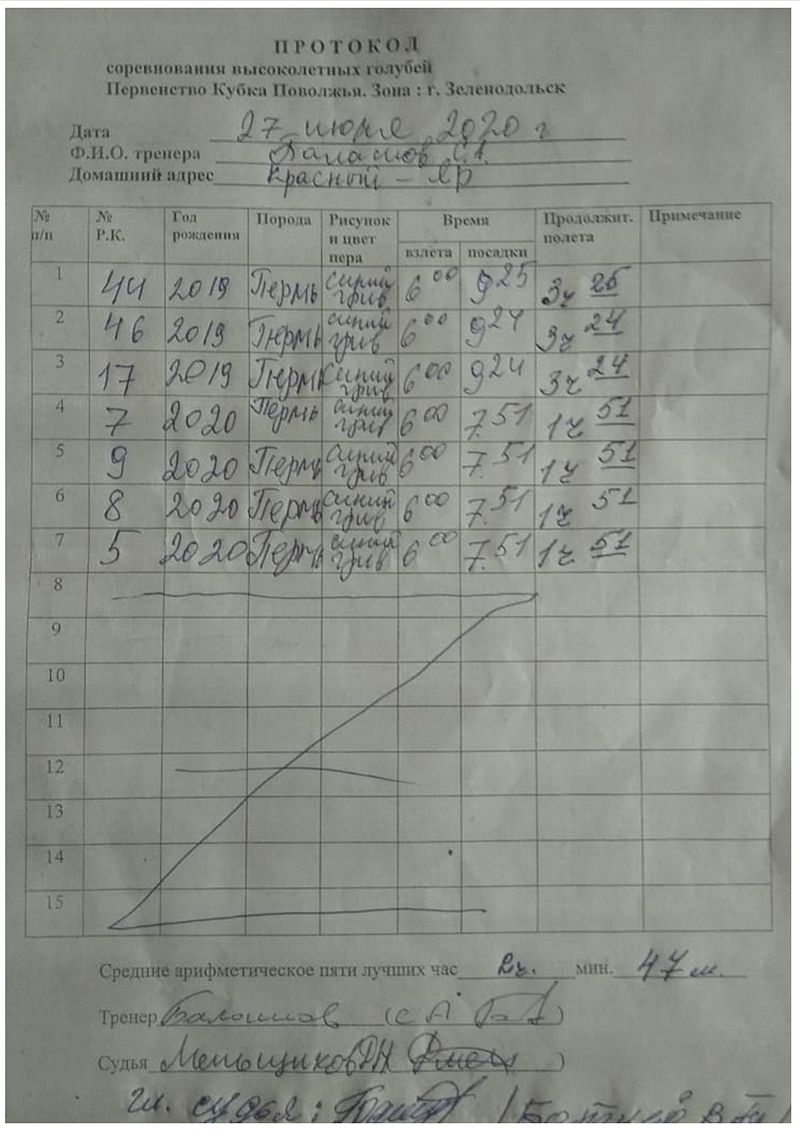 ПРОТОКОЛ
соревнования высоколетных голубей
Первенство Кубка Поволжья. Зона : г. Зеленодольск
Дата 27 июня 2020 г
Ф.И.О. тренера Балашов С.А.
Домашний адрес Красный - Яр
№ п/п № Р.К. Год рождения Порода Рисунок и цвет пера Время взлета посадки Продолжит. полета Примечание
1 44 2019 Пермь синий грив 6 00 9 25 3ч 25
2 46 2019 Пермь синий грив 6 00 9 24 3ч 24
3 17 2019 Пермь синий грив 6 00 9 24 3ч 24
4 7 2020 Пермь синий грив 6 00 7. 51 1ч 51
5 9 2020 Пермь синий грив 6 00 7. 51 1ч 51
6 8 2020 Пермь синий грив 6 00 7. 51 1ч 51
7 5 2020 Пермь синий грив 6 00 7. 51 1ч 51
8
9
10
11
12
13
14
15
Средние арифметическое пяти лучших час 2ч. мин. 47 м.
Тренер Балашов
Судья Меньщиков )
гл. судья :